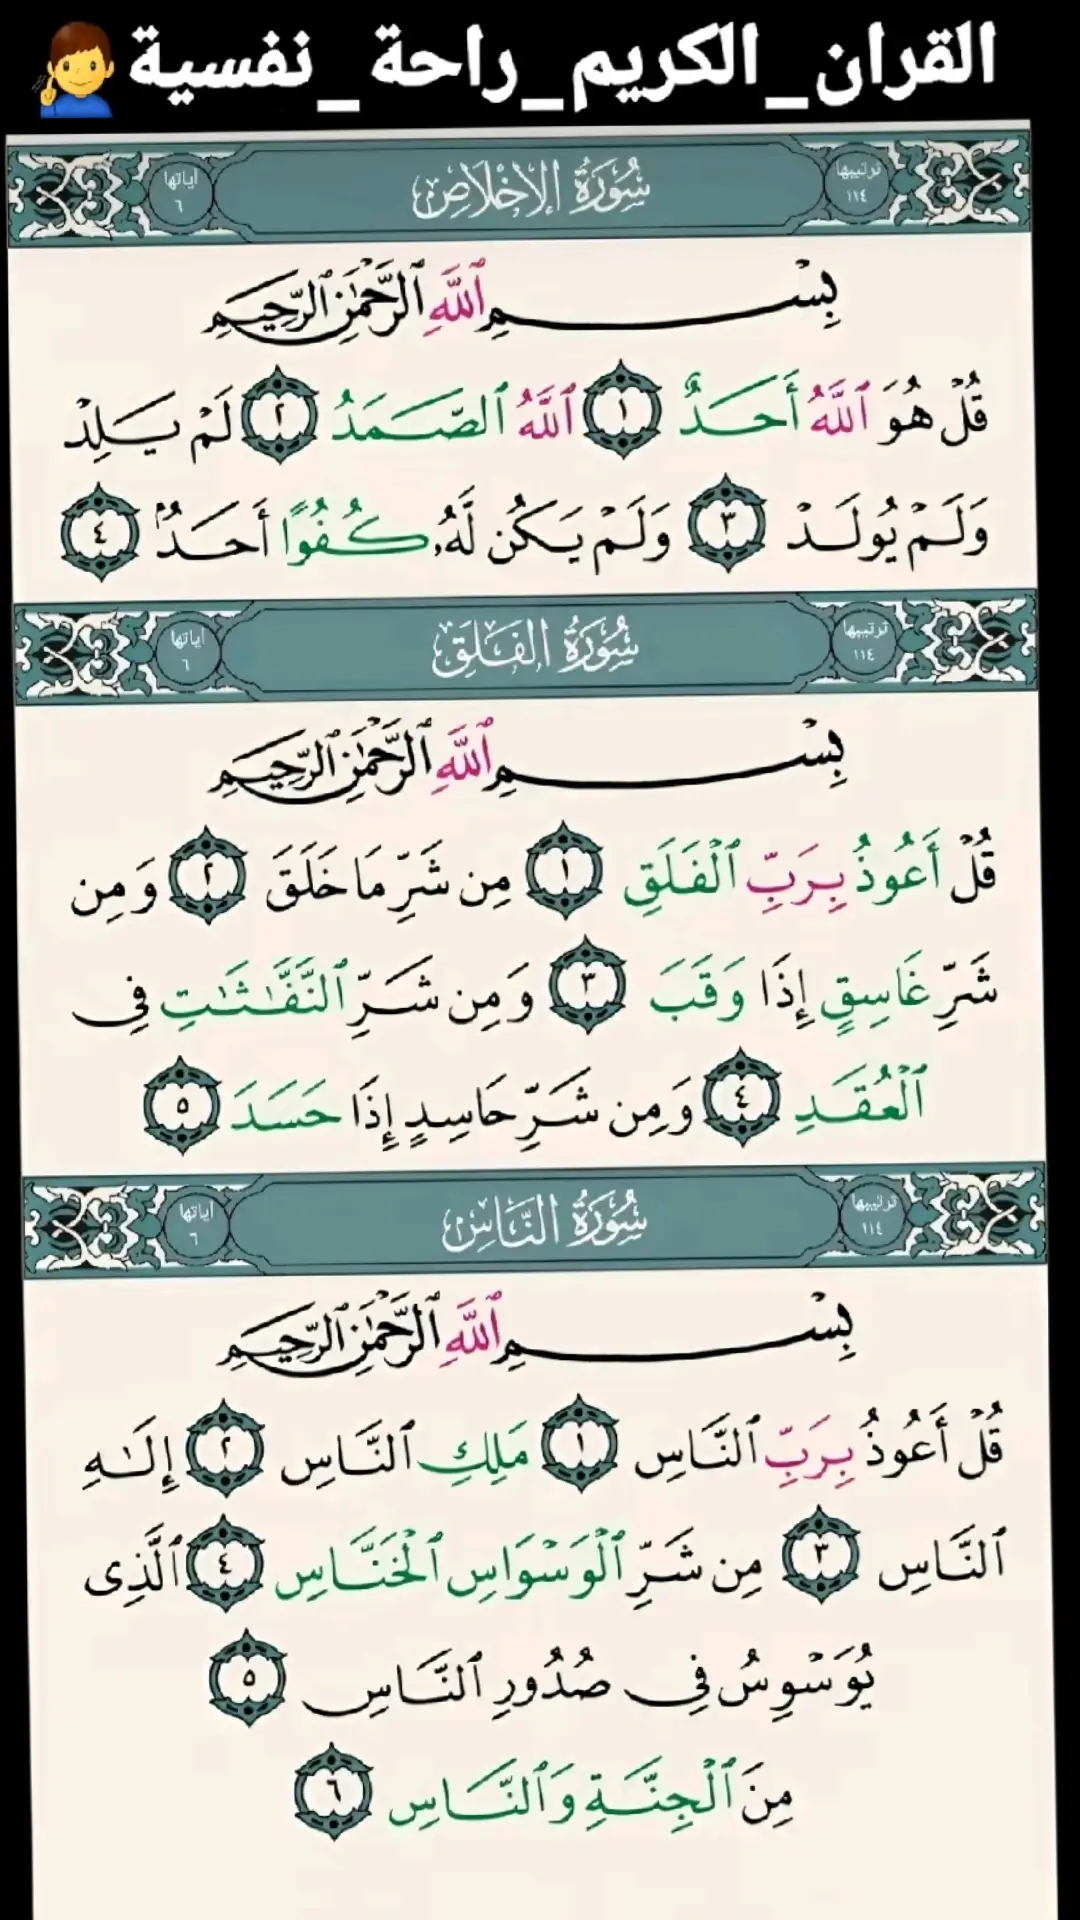 القران_الكريم_راحة_نفسية
ترتيبها ١١٤ سُورَةُ الإِخْلَاصِ اياتها ٦
بِسْمِ ٱللَّهِ ٱلرَّحْمَٰنِ ٱلرَّحِيمِ
قُلْ هُوَ ٱللَّهُ أَحَدٌ ١ ٱللَّهُ ٱلصَّمَدُ ٢ لَمْ يَلِدْ
وَلَمْ يُولَدْ ٣ وَلَمْ يَكُن لَّهُۥ كُفُوًا أَحَدٌۢ ٤
ترتيبها ١١٤ سُورَةُ الفَلَقِ اياتها ٦
بِسْمِ ٱللَّهِ ٱلرَّحْمَٰنِ ٱلرَّحِيمِ
قُلْ أَعُوذُ بِرَبِّ ٱلْفَلَقِ ١ مِن شَرِّ مَا خَلَقَ ٢ وَمِن
شَرِّ غَاسِقٍ إِذَا وَقَبَ ٣ وَمِن شَرِّ ٱلنَّفَّٰثَٰتِ فِى
ٱلْعُقَدِ ٤ وَمِن شَرِّ حَاسِدٍ إِذَا حَسَدَ ٥
ترتيبها ١١٤ سُورَةُ النَّاسِ اياتها ٦
بِسْمِ ٱللَّهِ ٱلرَّحْمَٰنِ ٱلرَّحِيمِ
قُلْ أَعُوذُ بِرَبِّ ٱلنَّاسِ ١ مَلِكِ ٱلنَّاسِ ٢ إِلَٰهِ
ٱلنَّاسِ ٣ مِن شَرِّ ٱلْوَسْوَاسِ ٱلْخَنَّاسِ ٤ ٱلَّذِى
يُوَسْوِسُ فِى صُدُورِ ٱلنَّاسِ ٥
مِنَ ٱلْجِنَّةِ وَٱلنَّاسِ ٦